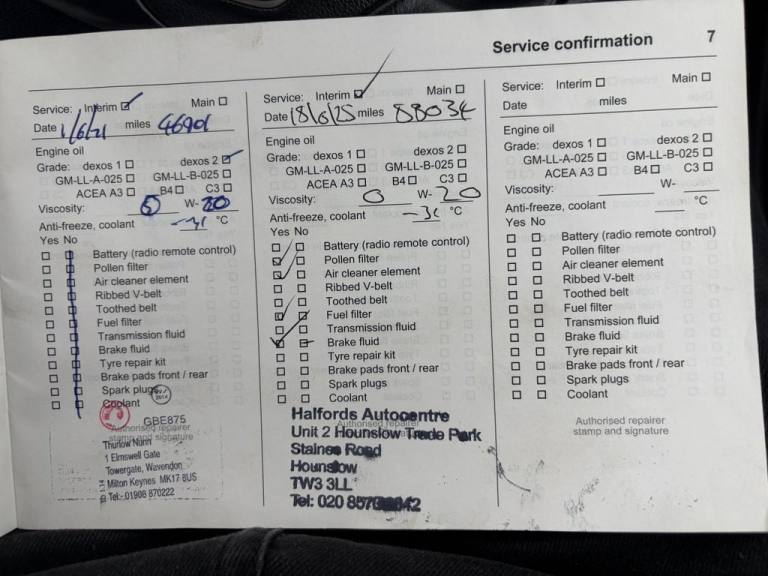 Service confirmation 7
Service: Interim Main
Date 1/6/21 miles 46901
Engine oil
Grade: dexos 1 dexos 2
GM-LL-A-025 GM-LL-B-025
ACEA A3 B4 C3
Viscosity: W-
Anti-freeze, coolant -31 °C
Yes No
Battery (radio remote control)
Pollen filter
Air cleaner element
Ribbed V-belt
Toothed belt
Fuel filter
Transmission fluid
Brake fluid
Tyre repair kit
Brake pads front / rear
Spark plugs
Coolant
GBE875
Authorised repairer
stamp and signature
Thurlow Nunn
1 Elmswell Gate
Towergate, Wavendon
Milton Keynes MK17 8US
Tel:- 01908 870222
Service: Interim Main
Date 18/6/25 miles 88034
Engine oil
Grade: dexos 1 dexos 2
GM-LL-A-025 GM-LL-B-025
ACEA A3 B4 C3
Viscosity: 0 W- 20
Anti-freeze, coolant °C
Yes No
Battery (radio remote control)
Pollen filter
Air cleaner element
Ribbed V-belt
Toothed belt
Fuel filter
Transmission fluid
Brake fluid
Tyre repair kit
Brake pads front / rear
Spark plugs
Coolant
Authorised repairer
Halfords Autocentre
Unit 2 Hounslow Trade Park
Staines Road
Hounslow
TW3 3LL
Tel: 020
Service: Interim Main
Date miles
Engine oil
Grade: dexos 1 dexos 2
GM-LL-A-025 GM-LL-B-025
ACEA A3 B4 C3
Viscosity: W-
Anti-freeze, coolant °C
Yes No
Battery (radio remote control)
Pollen filter
Air cleaner element
Ribbed V-belt
Toothed belt
Fuel filter
Transmission fluid
Brake fluid
Tyre repair kit
Brake pads front / rear
Spark plugs
Coolant
Authorised repairer
stamp and signature